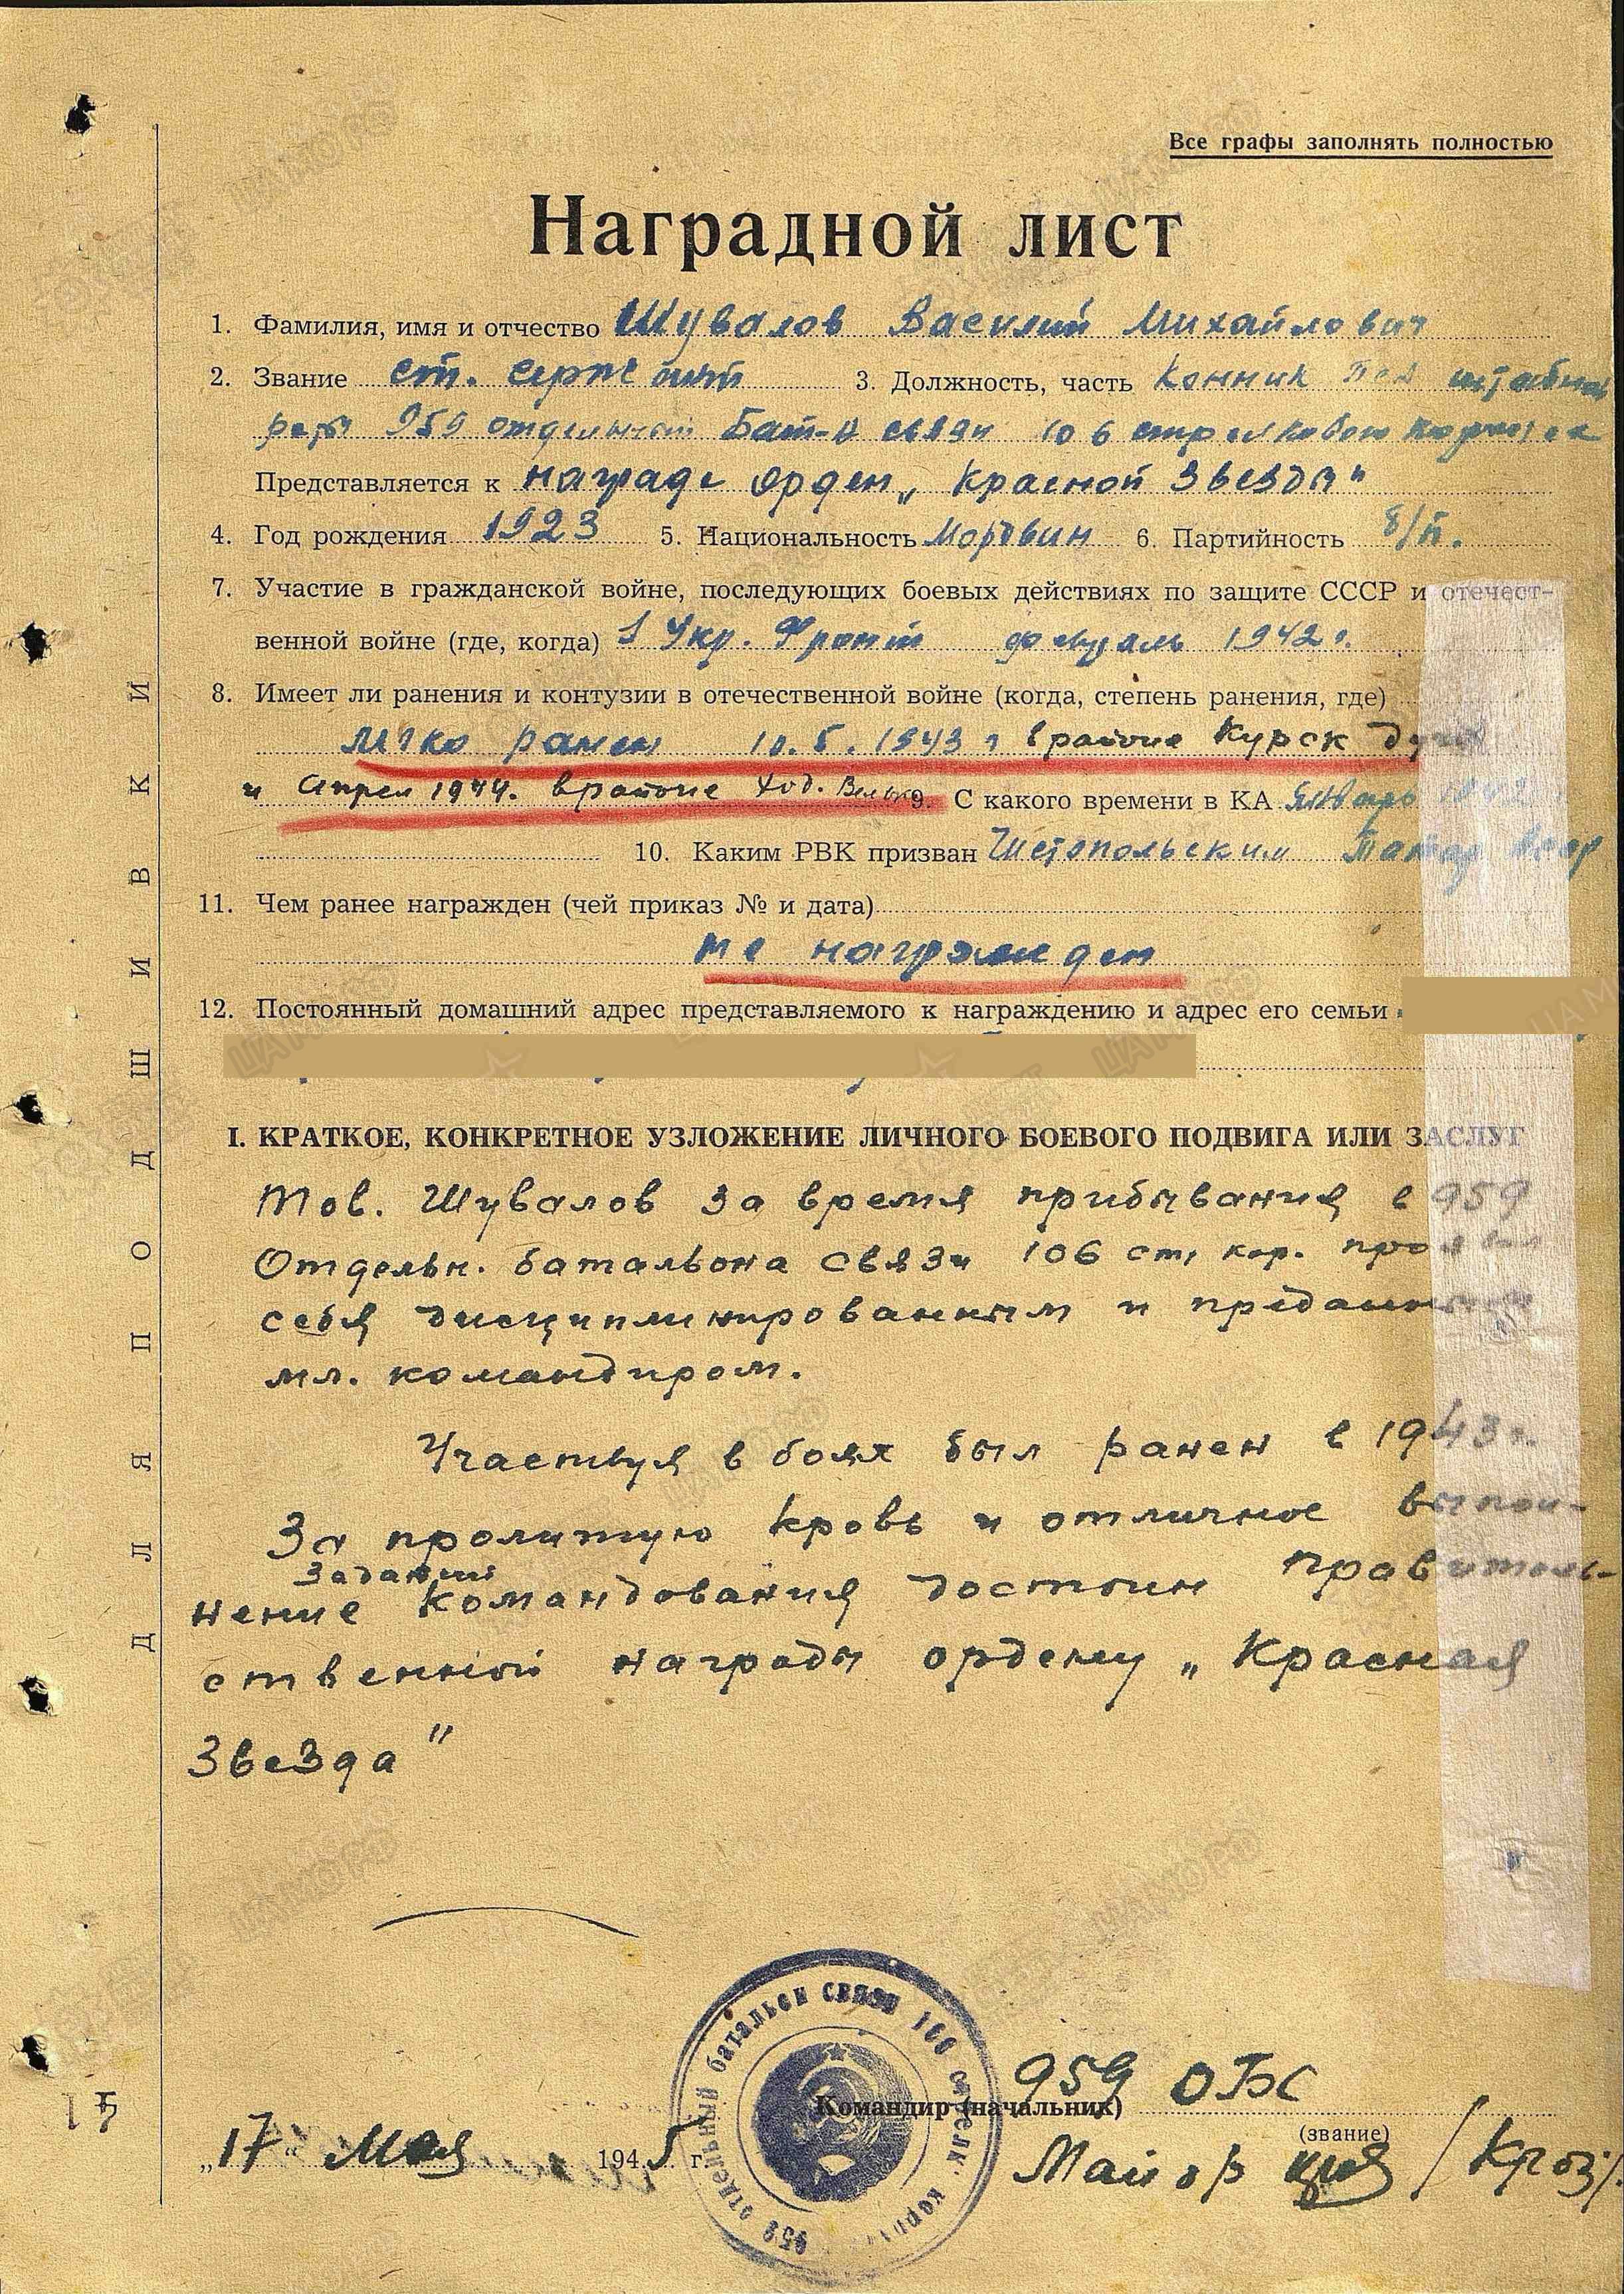 Все графы заполнять полностью
Наградной лист
1. Фамилия, имя и отчество Шувалов Василий Михайлович
2. Звание ст. сержант 3. Должность, часть Конник штабной
роты 959 отдельный Бат-н связи 106 стрелкового корпуса
Представляется к награде Орден „Красной Звезды"
4. Год рождения 1923 5. Национальность Мордвин 6. Партийность б/п.
7. Участие в гражданской войне, последующих боевых действиях по защите СССР и отечест-
венной войне (где, когда) 1 Укр. Фронт февраль 1942 г.
8. Имеет ли ранения и контузии в отечественной войне (когда, степень ранения, где)
легко ранен 10.5.1943 г в районе Курск дуга
и Апрел 1944. в районе
9. С какого времени в КА Январь 1942
10. Каким РВК призван Татар
11. Чем ранее награжден (чей приказ № и дата)
не награжден
12. Постоянный домашний адрес представляемого к награждению и адрес его семьи
I. КРАТКОЕ, КОНКРЕТНОЕ УЗЛОЖЕНИЕ ЛИЧНОГО БОЕВОГО ПОДВИГА ИЛИ ЗАСЛУГ
Тов. Шувалов за время прибывания в 959
Отдельн. батальона связи 106 ст, кор. проявил
себя дисциплинированным и преданным
мл. командиром.
Участвуя в боях был ранен в 1943 г.
За пролитую кровь и отличное выпол-
задании
нение командования достоин правитель-
ственной награды ордену „Красная
Звезда"
959 отдельный батальон связи 106 стрелк. корпуса
959 ОБС
Командир (начальник)
(звание)
„17" Мая 1945 г.
Майор
ДЛЯ ПОДШИВКИ